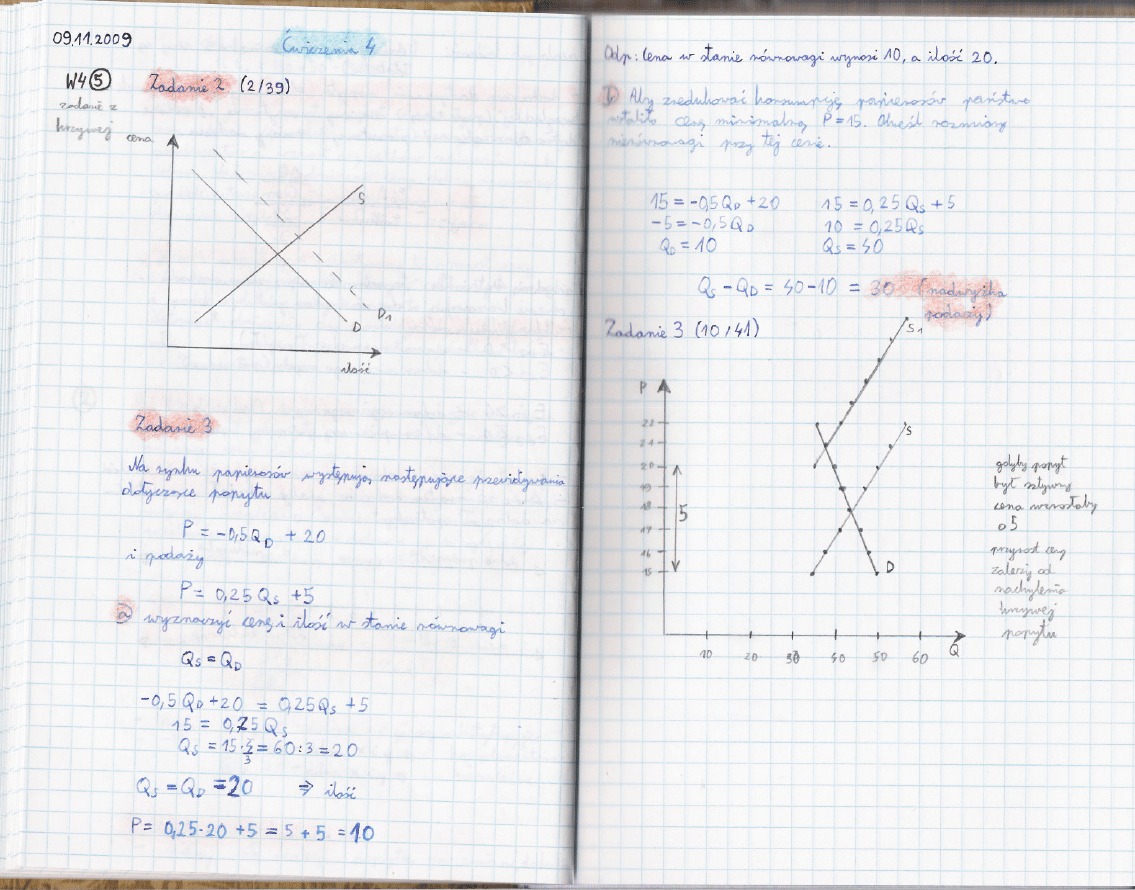 09.11.2009
Ćwiczenia 4
W4 5
Zadanie 2 (2/39)
zadanie z
krzywej
cena
S
D1
D
ilość
Zadanie 3
Na rynku papierosów występują następujące przewidywania
dotyczące popytu
P = -0,5QD + 20
i podaży
P = 0,25 QS +5
a) wyznaczyć cenę i ilość w stanie równowagi
QS = QD
-0,5 QD +20 = 0,25QS +5
15 = 0,75 QS
QS = 15·4/3 = 60:3 = 20
QS = QD = 20 ⇒ ilość
P = 0,25·20 +5 = 5 + 5 = 10
Odp: Cena w stanie równowagi wynosi 10, a ilość 20.
b) Aby zredukować konsumpcję papierosów państwo
ustaliło cenę minimalną P = 15. Określ rozmiary
nierównowagi przy tej cenie.
15 = -0,5QD +20
15 = 0,25 QS +5
-5 = -0,5QD
10 = 0,25QS
QD = 10
QS = 40
QS - QD = 40-10 = 30 (nadwyżka
podaży)
Zadanie 3 (10/41)
S1
P
22
21
20
19
18
17
16
15
5
S
D
10 20 30 40 50 60 Q
gdyby popyt
był sztywny
cena wzrosłaby
o 5
przyrost ceny
zależy od
nachylenia
krzywej
popytu